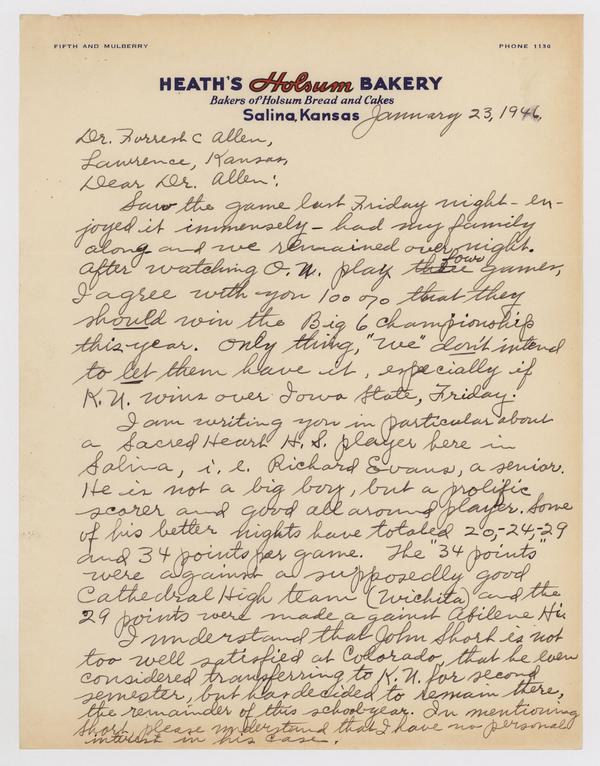 FIFTH AND MULBERRY
PHONE 1130
HEATH'S Holsum BAKERY
Bakers of Holsum Bread and Cakes
Salina, Kansas
January 23, 1946.
Dr. Forrest C Allen,
Lawrence, Kansas,
Dear Dr. Allen:
Saw the game last Friday night - en-
joyed it immensely - had my family
along and we remained over night.
After watching O. U. play four games,
I agree with you 100% that they
should win the Big 6 championship
this year. Only thing, "we" don't intend
to let them have it, especially if
K. U. wins over Iowa State, Friday.
I am writing you in particular about
a Sacred Heart H. S. player here in
Salina, i. e. Richard Evans, a senior.
He is not a big boy, but a prolific
scorer and good all around player. Some
of his better nights have totaled 20,-24,-29
and 34 points per game. The "34 points"
were against a supposedly good
Cathedral High team (Wichita) and the
29 points were made against Abilene Hi.
I understand that John Short is not
too well satisfied at Colorado, that he even
considered transferring to K. U. for second
semester, but has decided to remain there,
the remainder of this school year. In mentioning
Short, please understand that I have no personal
interest in his case.